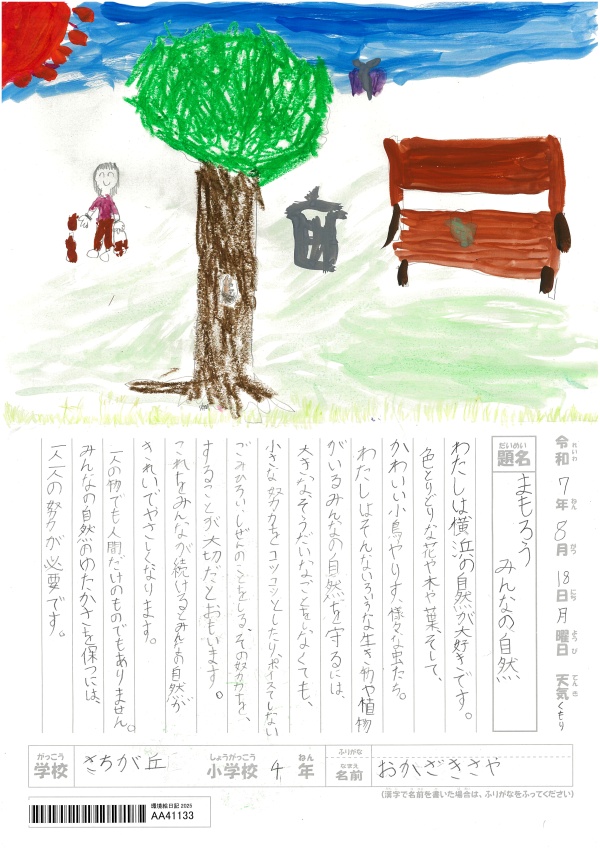 令和 7年 8月 18日 月曜日 天気 くもり
れいわ ねん がつ にち ようび てんき
だいめい
題名
まもろう
みんなの自然
わたしは横浜の自然が大好きです。
色とりどりな花や木や葉、そして、
かわいい小鳥やりす、様々な虫たち。
わたしはそんないろいろな生き物や植物
がいるみんなの自然を守るには、
大きなそうだいなことをしなくても、
小さな努力をコツコツとしたり、ポイすてしない
ごみひろい、しぜんのことをしる、その努力を、
することが大切だとおもいます。
これをみんなが続けるとみんなの自然が
きれいでやさしくなります。
一人の物でも人間だけのものでもありません。
みんなの自然のゆたかさを保つには、
一人一人の努力が必要です。
がっこう しょうがっこう ねん ふりがな
学校 さちが丘 小学校 4年
なまえ
名前 おかざきさや
(漢字で名前を書いた場合は、ふりがなをふってください)
環境絵日記 2025
AA41133